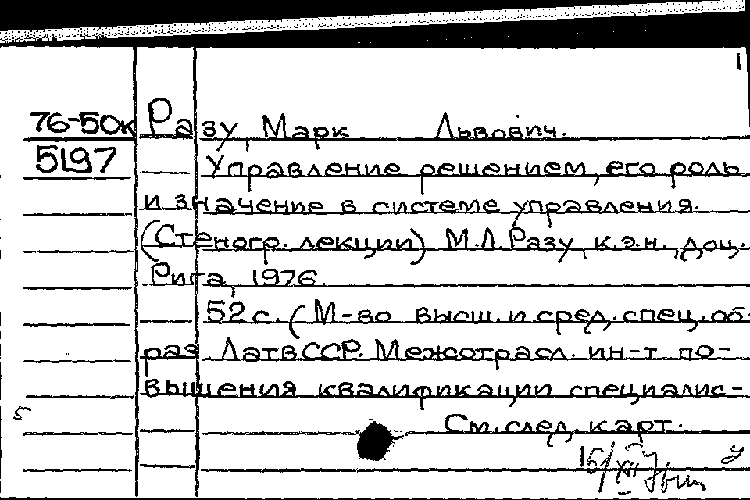 1
76-50к Разу, Марк Львович.
5197 Управление решением, его роль
и значение в системе управления.
(Стеногр. лекции) М.Л. Разу, к.э.н., доц.
Рига, 1976.
52 с. (М-во высш. и сред. спец. об-
раз. ЛатвССР. Межотрасл. ин-т по-
вышения квалификации специалис-
5 См. след. карт.
15/XII